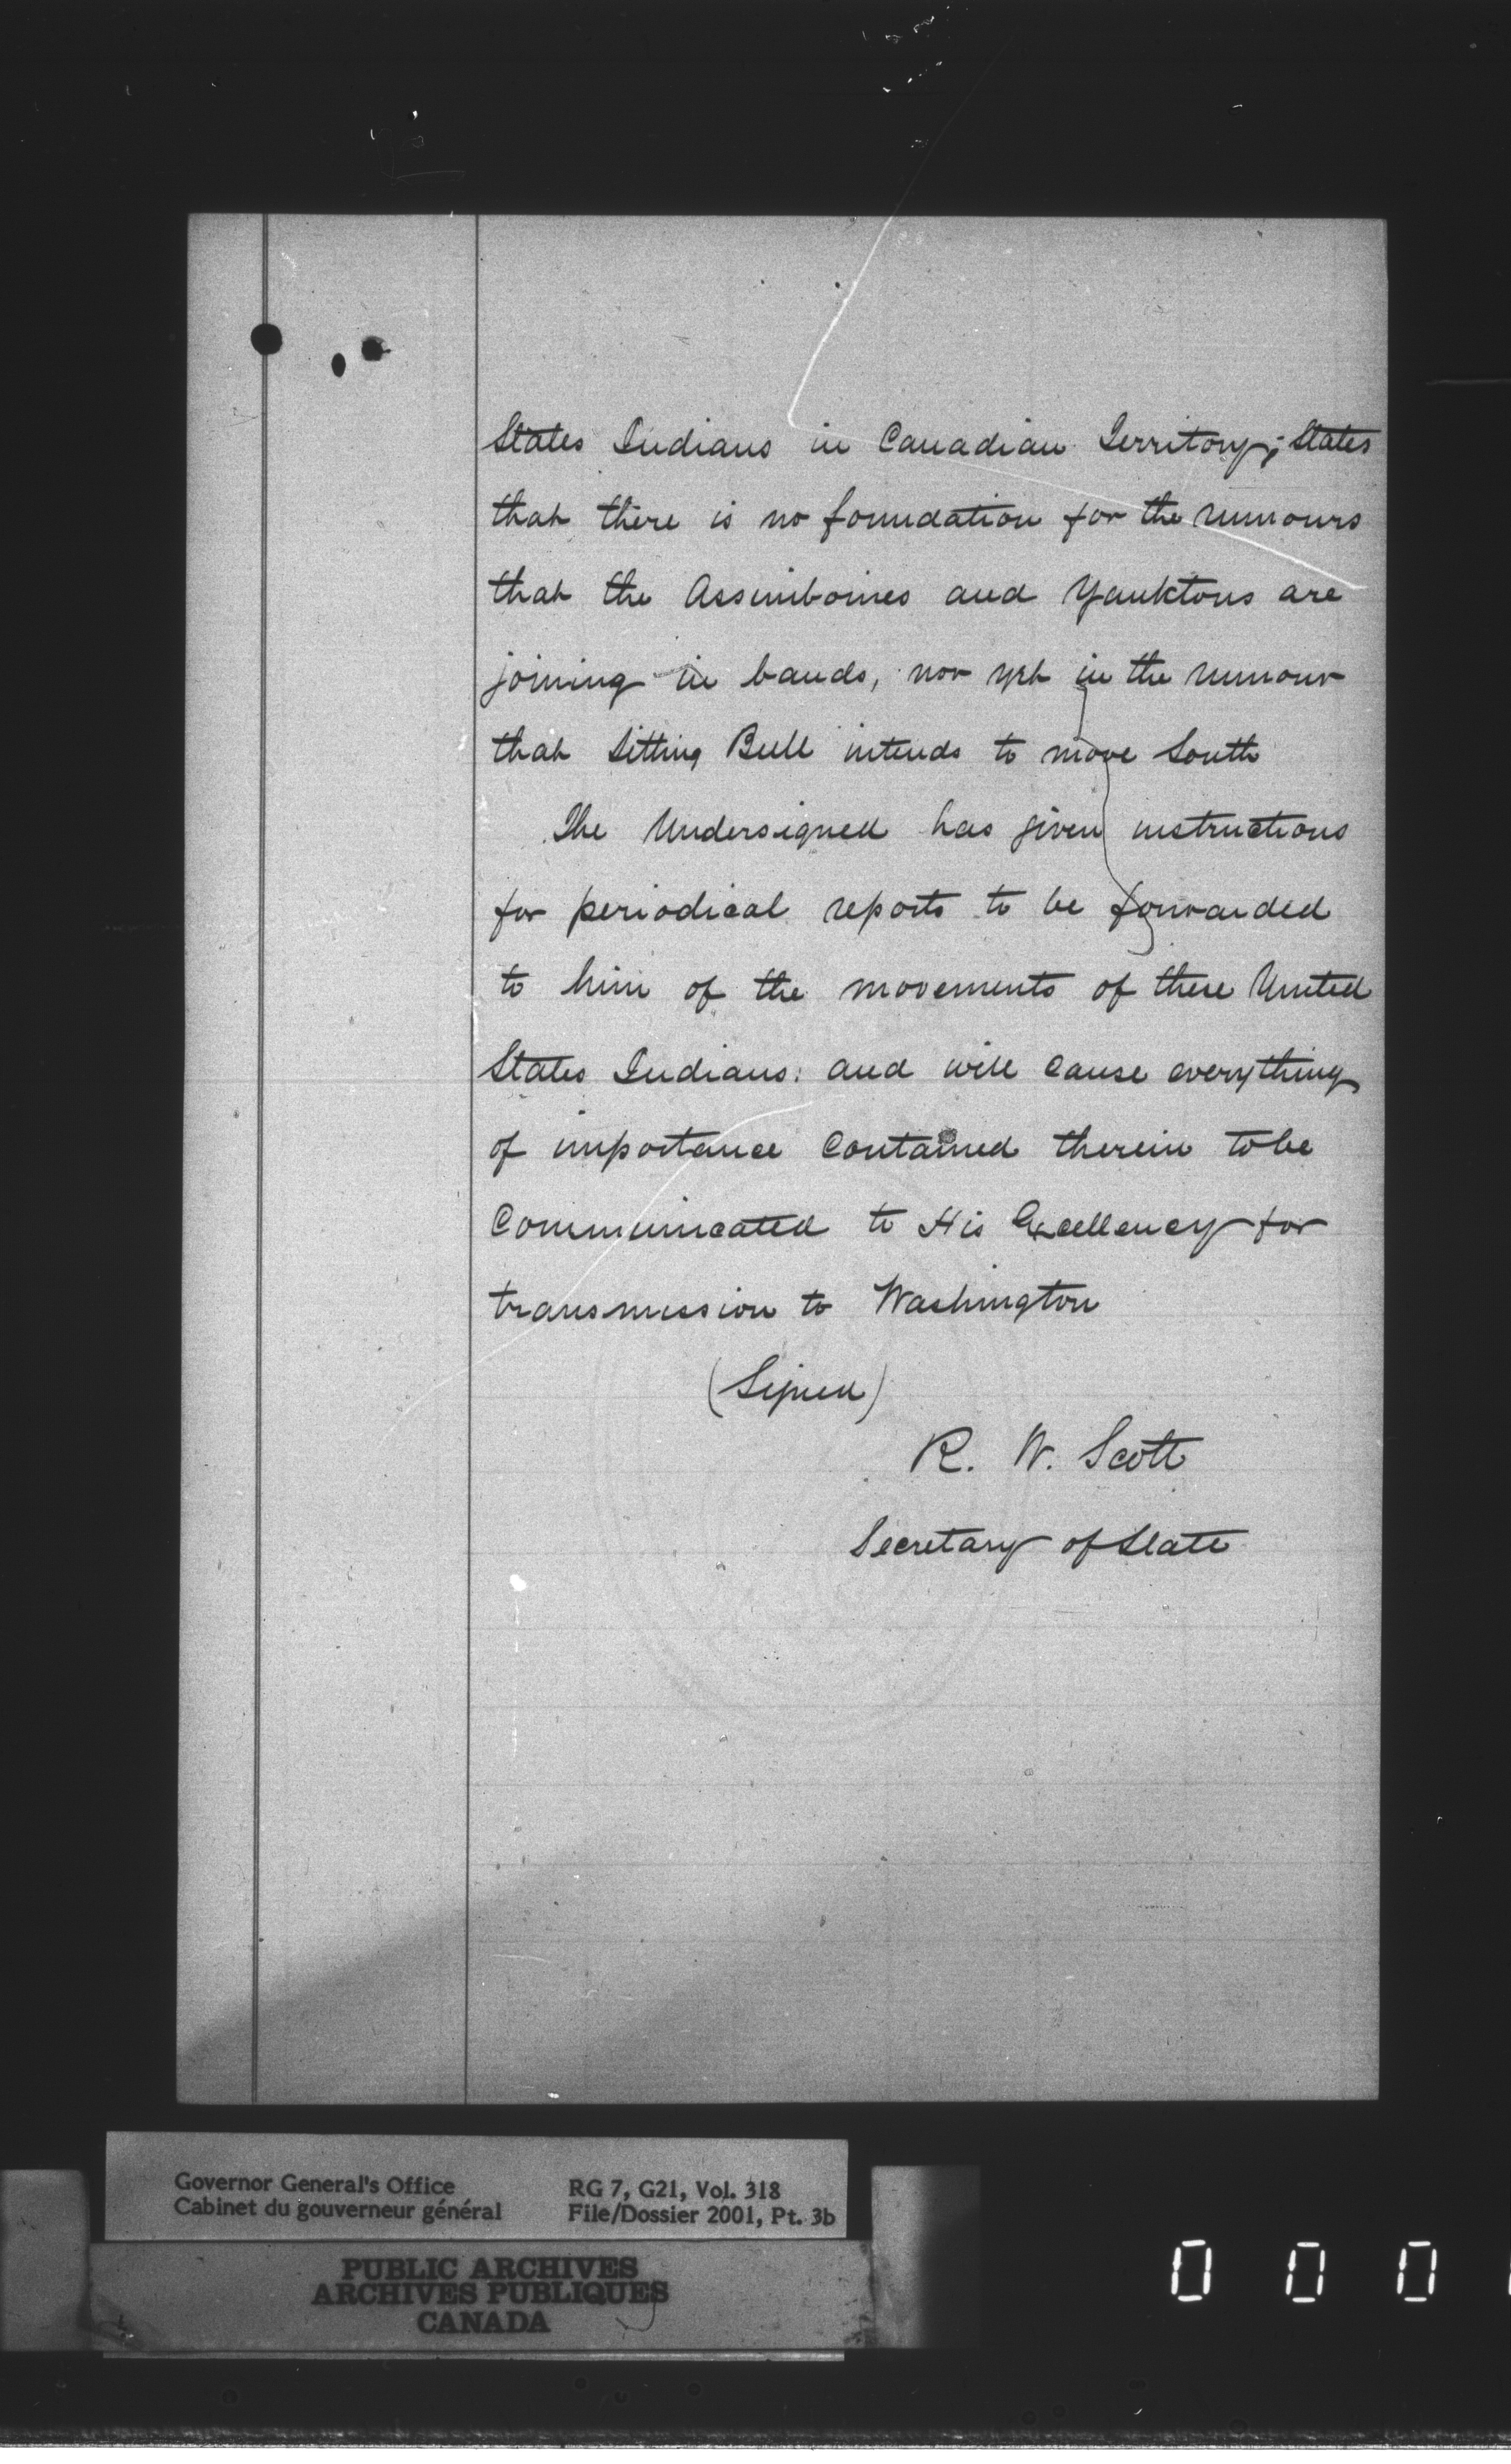 States Indians in Canadian Territory; States
that there is no foundation for the rumours
that the Assiniboines and Yanktons are
joining in bands, nor yet in the rumour
that Sitting Bull intends to move South
The Undersigned has given instructions
for periodical reports to be forwarded
to him of the movements of these United
States Indians: and will cause everything
of importance contained therein to be
Communicated to His Excellency for
transmission to Washington
(Signed)
R. W. Scott
Secretary of State
Governor General's Office
Cabinet du gouverneur général
RG 7, G21, Vol. 318
File/Dossier 2001, Pt. 3b
PUBLIC ARCHIVES
ARCHIVES PUBLIQUES
CANADA
0 0 0